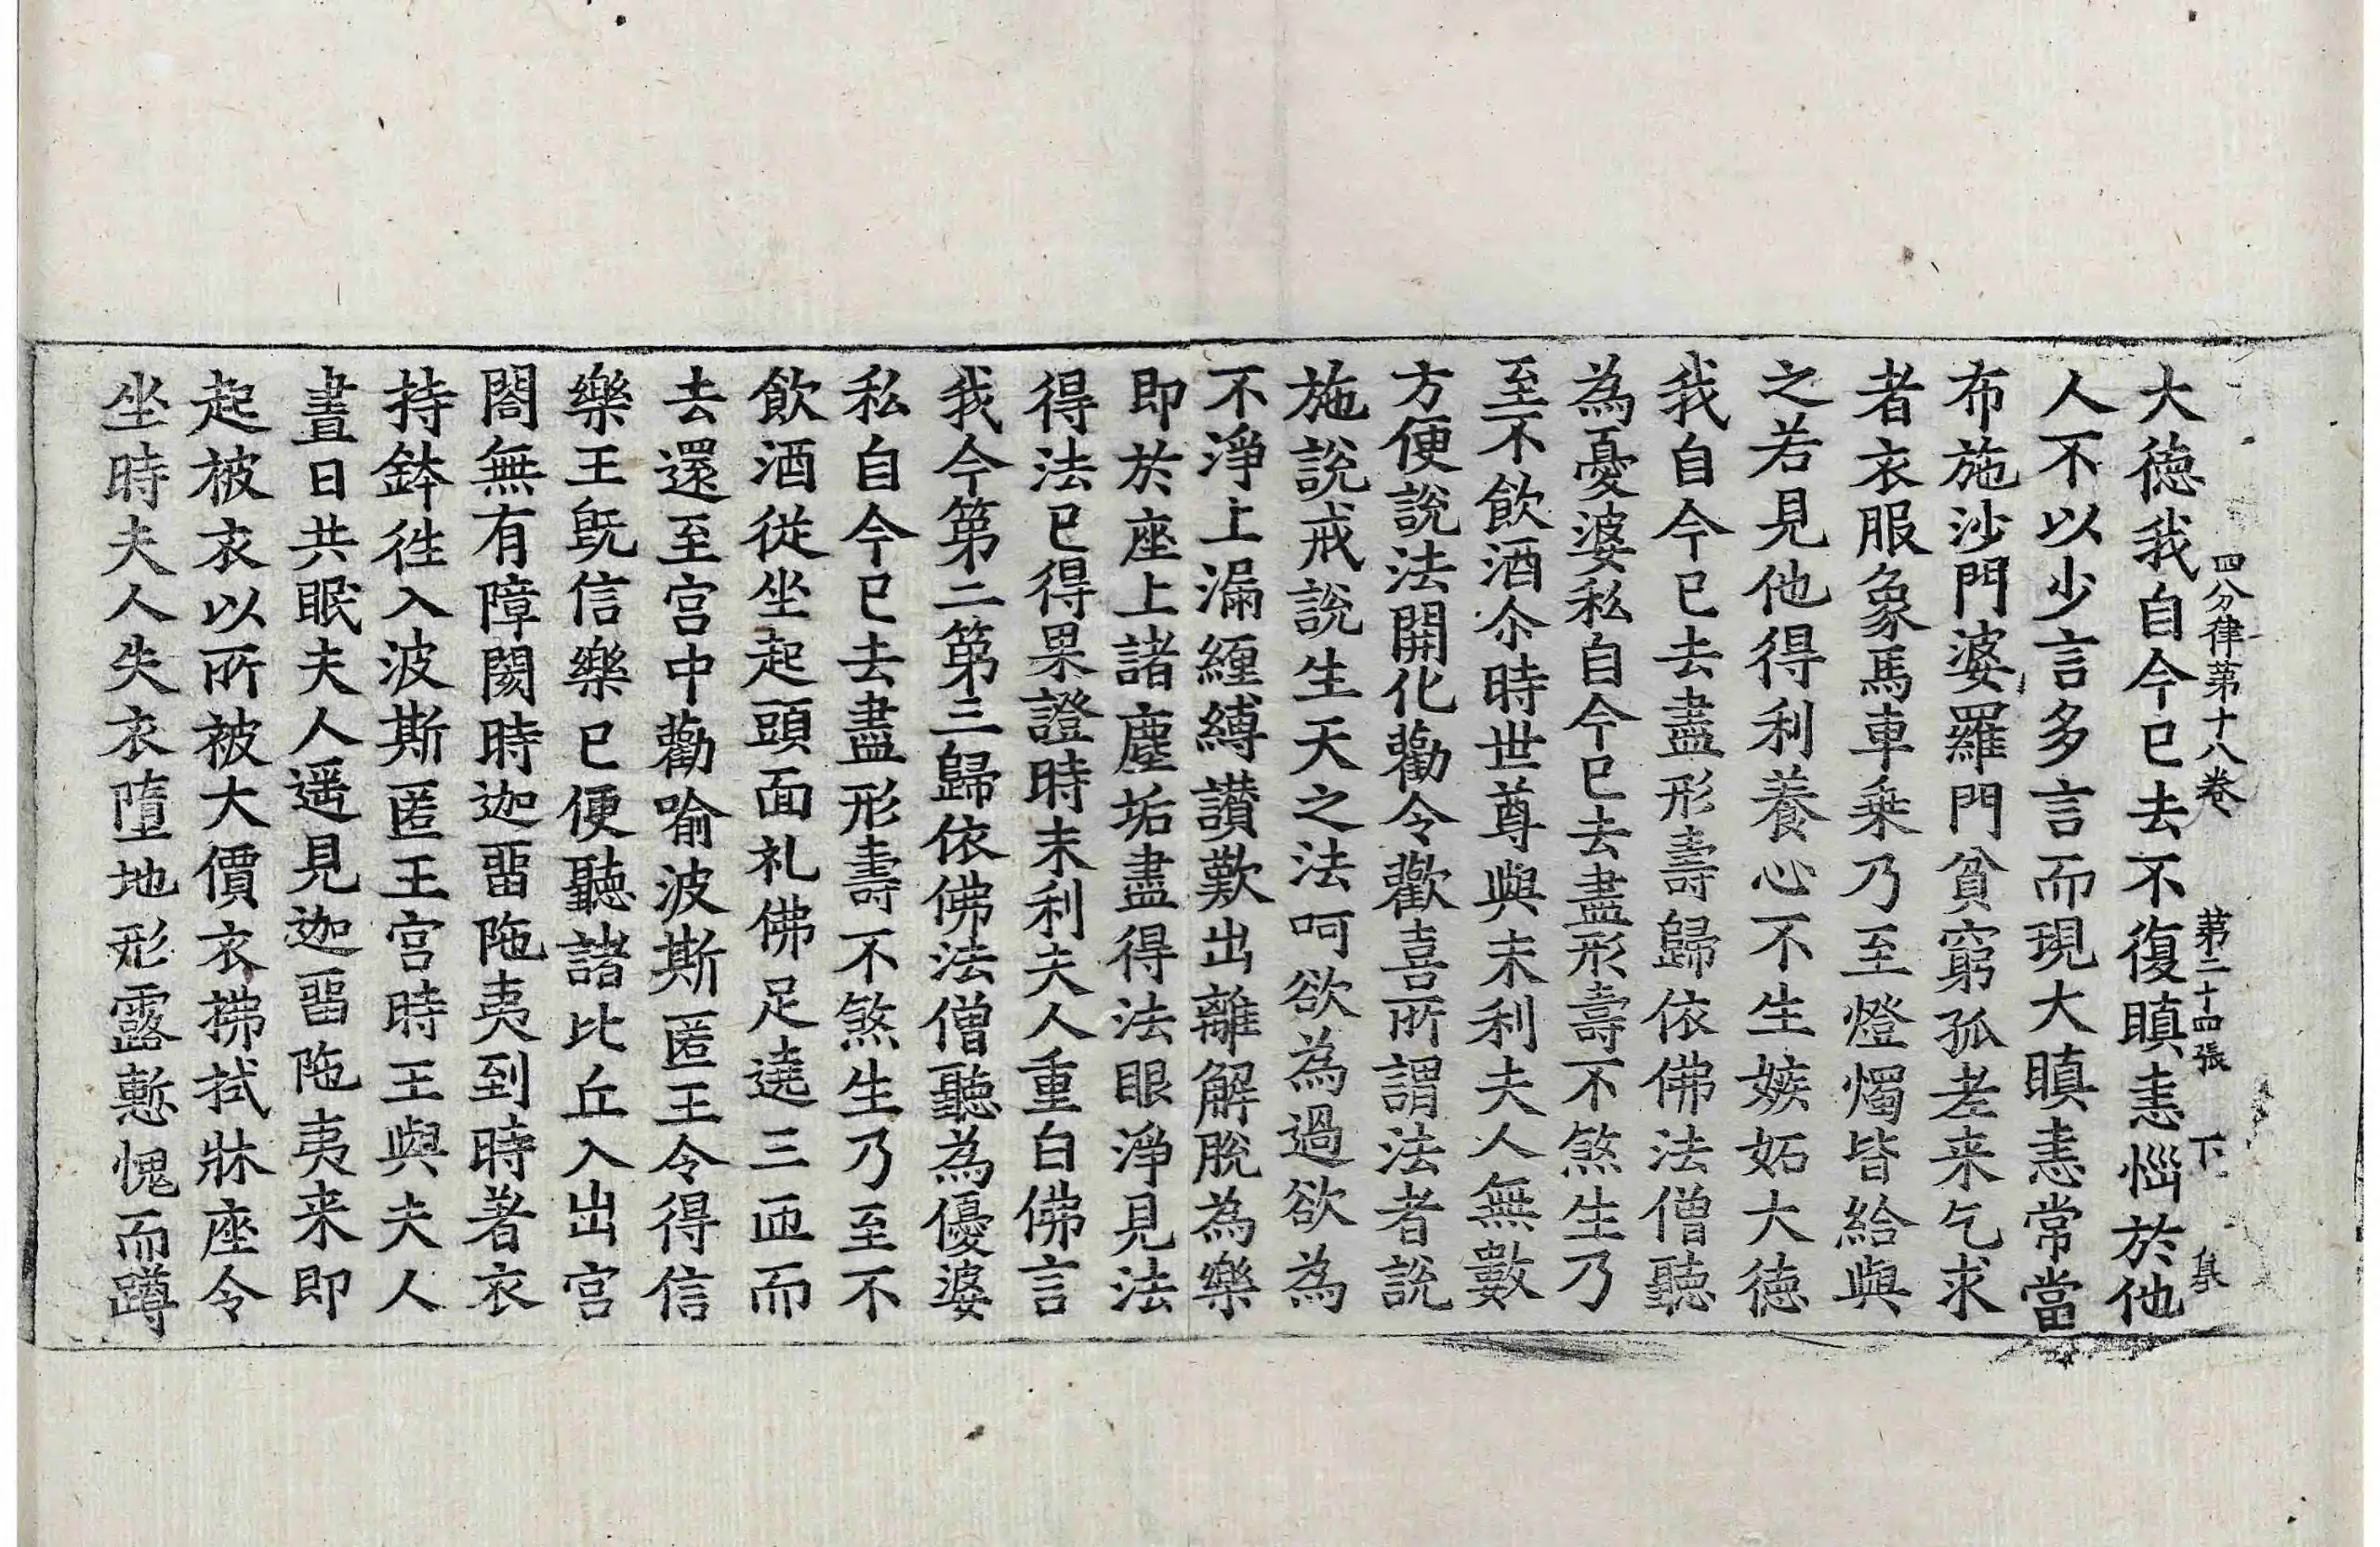 四分律第十八卷 第二十四張 下 集
大徳我自今已去不復瞋恚惱於他
人不以少言多言而現大瞋恚常當
布施沙門婆羅門貧窮孤老来乞求
者衣服象馬車乗乃至燈燭皆給與
之若見他得利養心不生嫉妬大徳
我自今已去盡形壽歸依佛法僧聽
為憂婆私自今已去盡形壽不煞生乃
至不飲酒尒時世尊與末利夫人無數
方便說法開化勸令歡喜所謂法者說
施說戒說生天之法呵欲為過欲為
不淨上漏纏縛讃歎出離解脫為樂
即於座上諸塵垢盡得法眼淨見法
得法已得果證時末利夫人重白佛言
我今第二第三歸依佛法僧聽為優婆
私自今已去盡形壽不煞生乃至不
飲酒従坐起頭面礼佛足遶三迊而
去還至宫中勸喻波斯匿王令得信
樂王旣信樂已便聽諸比丘入出宫
閤無有障閡時迦畱陁夷到時著衣
持鉢徃入波斯匿王宫時王與夫人
晝日共眠夫人遥見迦畱陁夷来即
起被衣以所被大價衣拂拭牀座令
坐時夫人失衣墮地形露慙愧而蹲